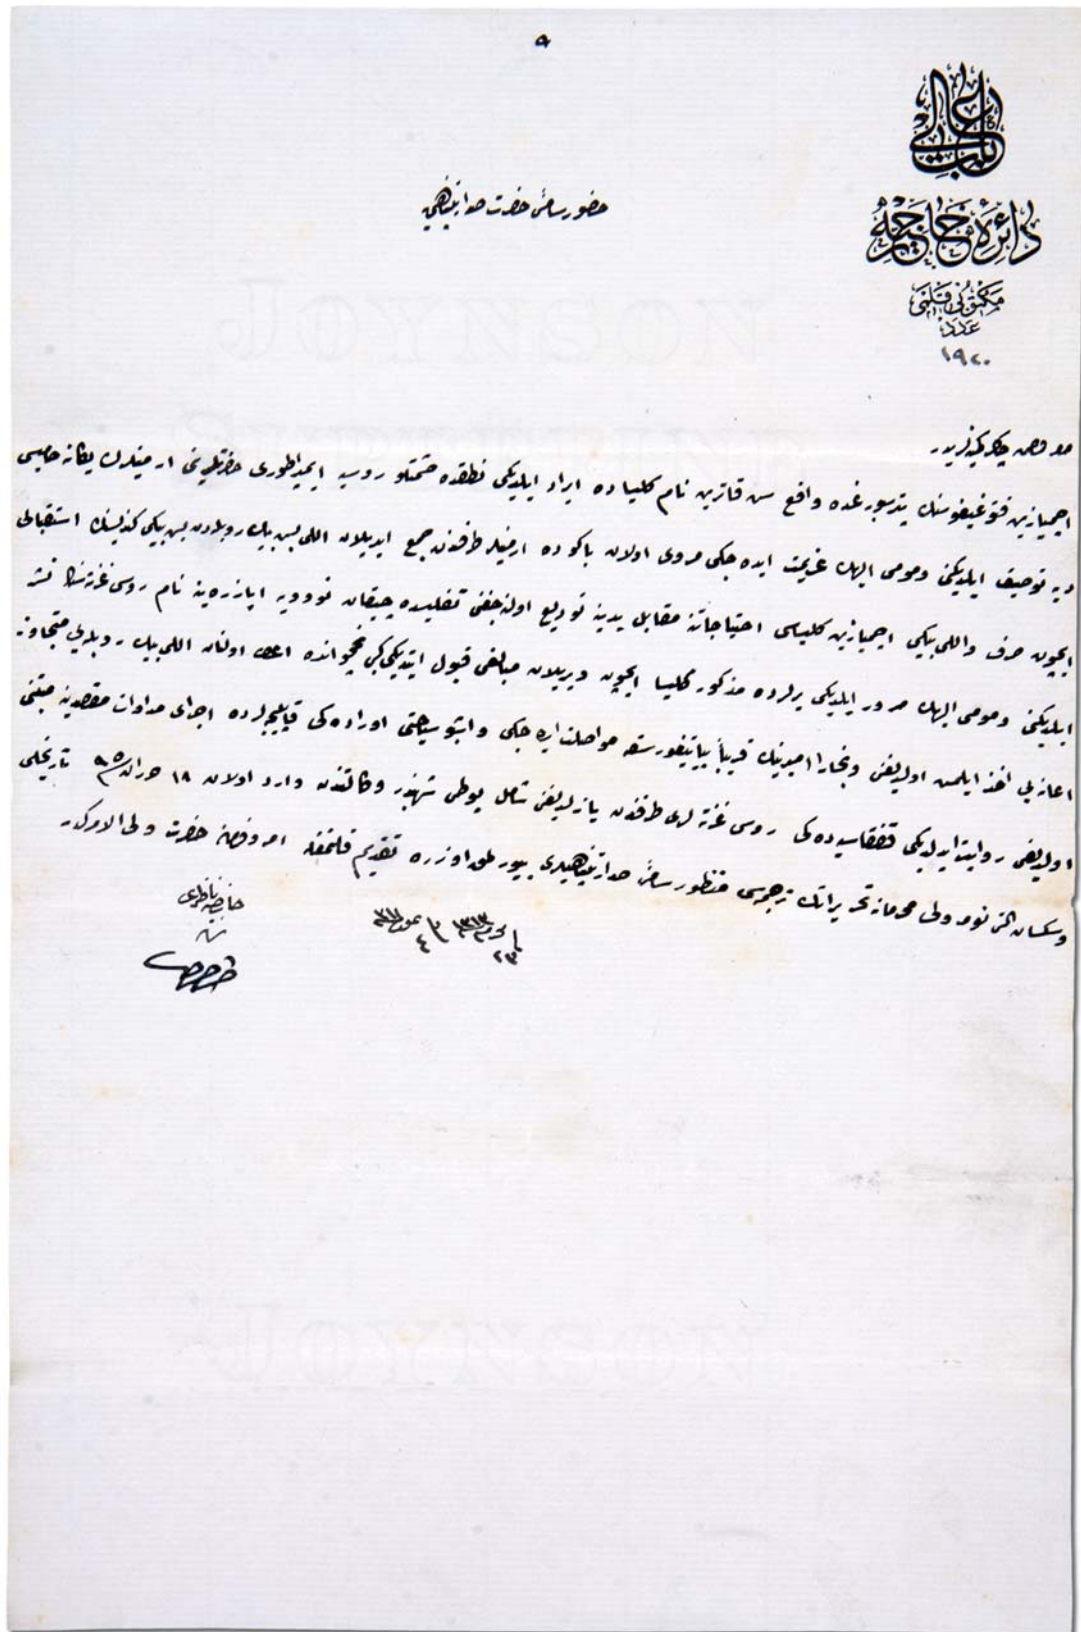 ٩
باب عالی
دائرهٔ خارجیه
مکتوبی قلمی
عدد
١٩٢٠
حضور سامیٔ حضرت صدارتپناهی
معروض چاکر کمینه‌لریدر
اجمیازین قتوغیقوسنك پترسبورغده واقع سن قاترین نام کلیساده ایراد ایلدیکی نطقده حشمتلو روسیه ایمپراطوری حضرتلرینی ارمنیلرك یکانه حامیسی
دیه توصیف ایلدیکی ومومی الیهك عزیمت ایده جکی مروی اولان باکوده ارمنیلر طرفندن جمع ایدیلان اللی بش بیك روبله‌دن بش بیکی کندیسنك استقبالی
ایچون صرف واللی بیکی اجمیازین کلیساسی احتیاجاتنه مقابل یدینه تودیع اولنه‌جغنی تفلیسده چیقان نوویه اپازره‌نیه نام روسی غزته‌سنك نشر
ایلدیکی ومومی الیهك مرور ایلدیکی یرلرده مذکور کلیسا ایچون ویریلان مبالغی قبول ایتدیکی کبی نخجوانده اعطا اولنان اللی بیك روبله‌یی متجاوز
اعانه‌یی اخذ ایلمش اولدیغی وبخارا امیرینك قریباً پیاتیغورسقه مواصلت ایده جکی واشبو سیاحتی اوراده‌کی قاپلیجه‌لرده اجرای مداوات مقصدینه مبتنی
اولدیغی روایت ایدلدیکی قفقاسیه‌ده‌کی روسی غزته‌لری طرفندن یازلدیغنی شامل پوطی شهبندر وکالتندن وارد اولان ١٨ حزیران سنه ٩٥ تاریخلی
وسکسان التی نومرولی محرمانه تحریراتك ترجمه‌سی منظور سامیٔ صدارتپناهیلری بیورلمق اوزره تقدیم قلنمغله امر وفرمان حضرت ولی الامرکدر
فی ٢٣ محرم سنه ٣١٣ وفی ٤ تموز سنه ٣١١
خارجیه ناظری